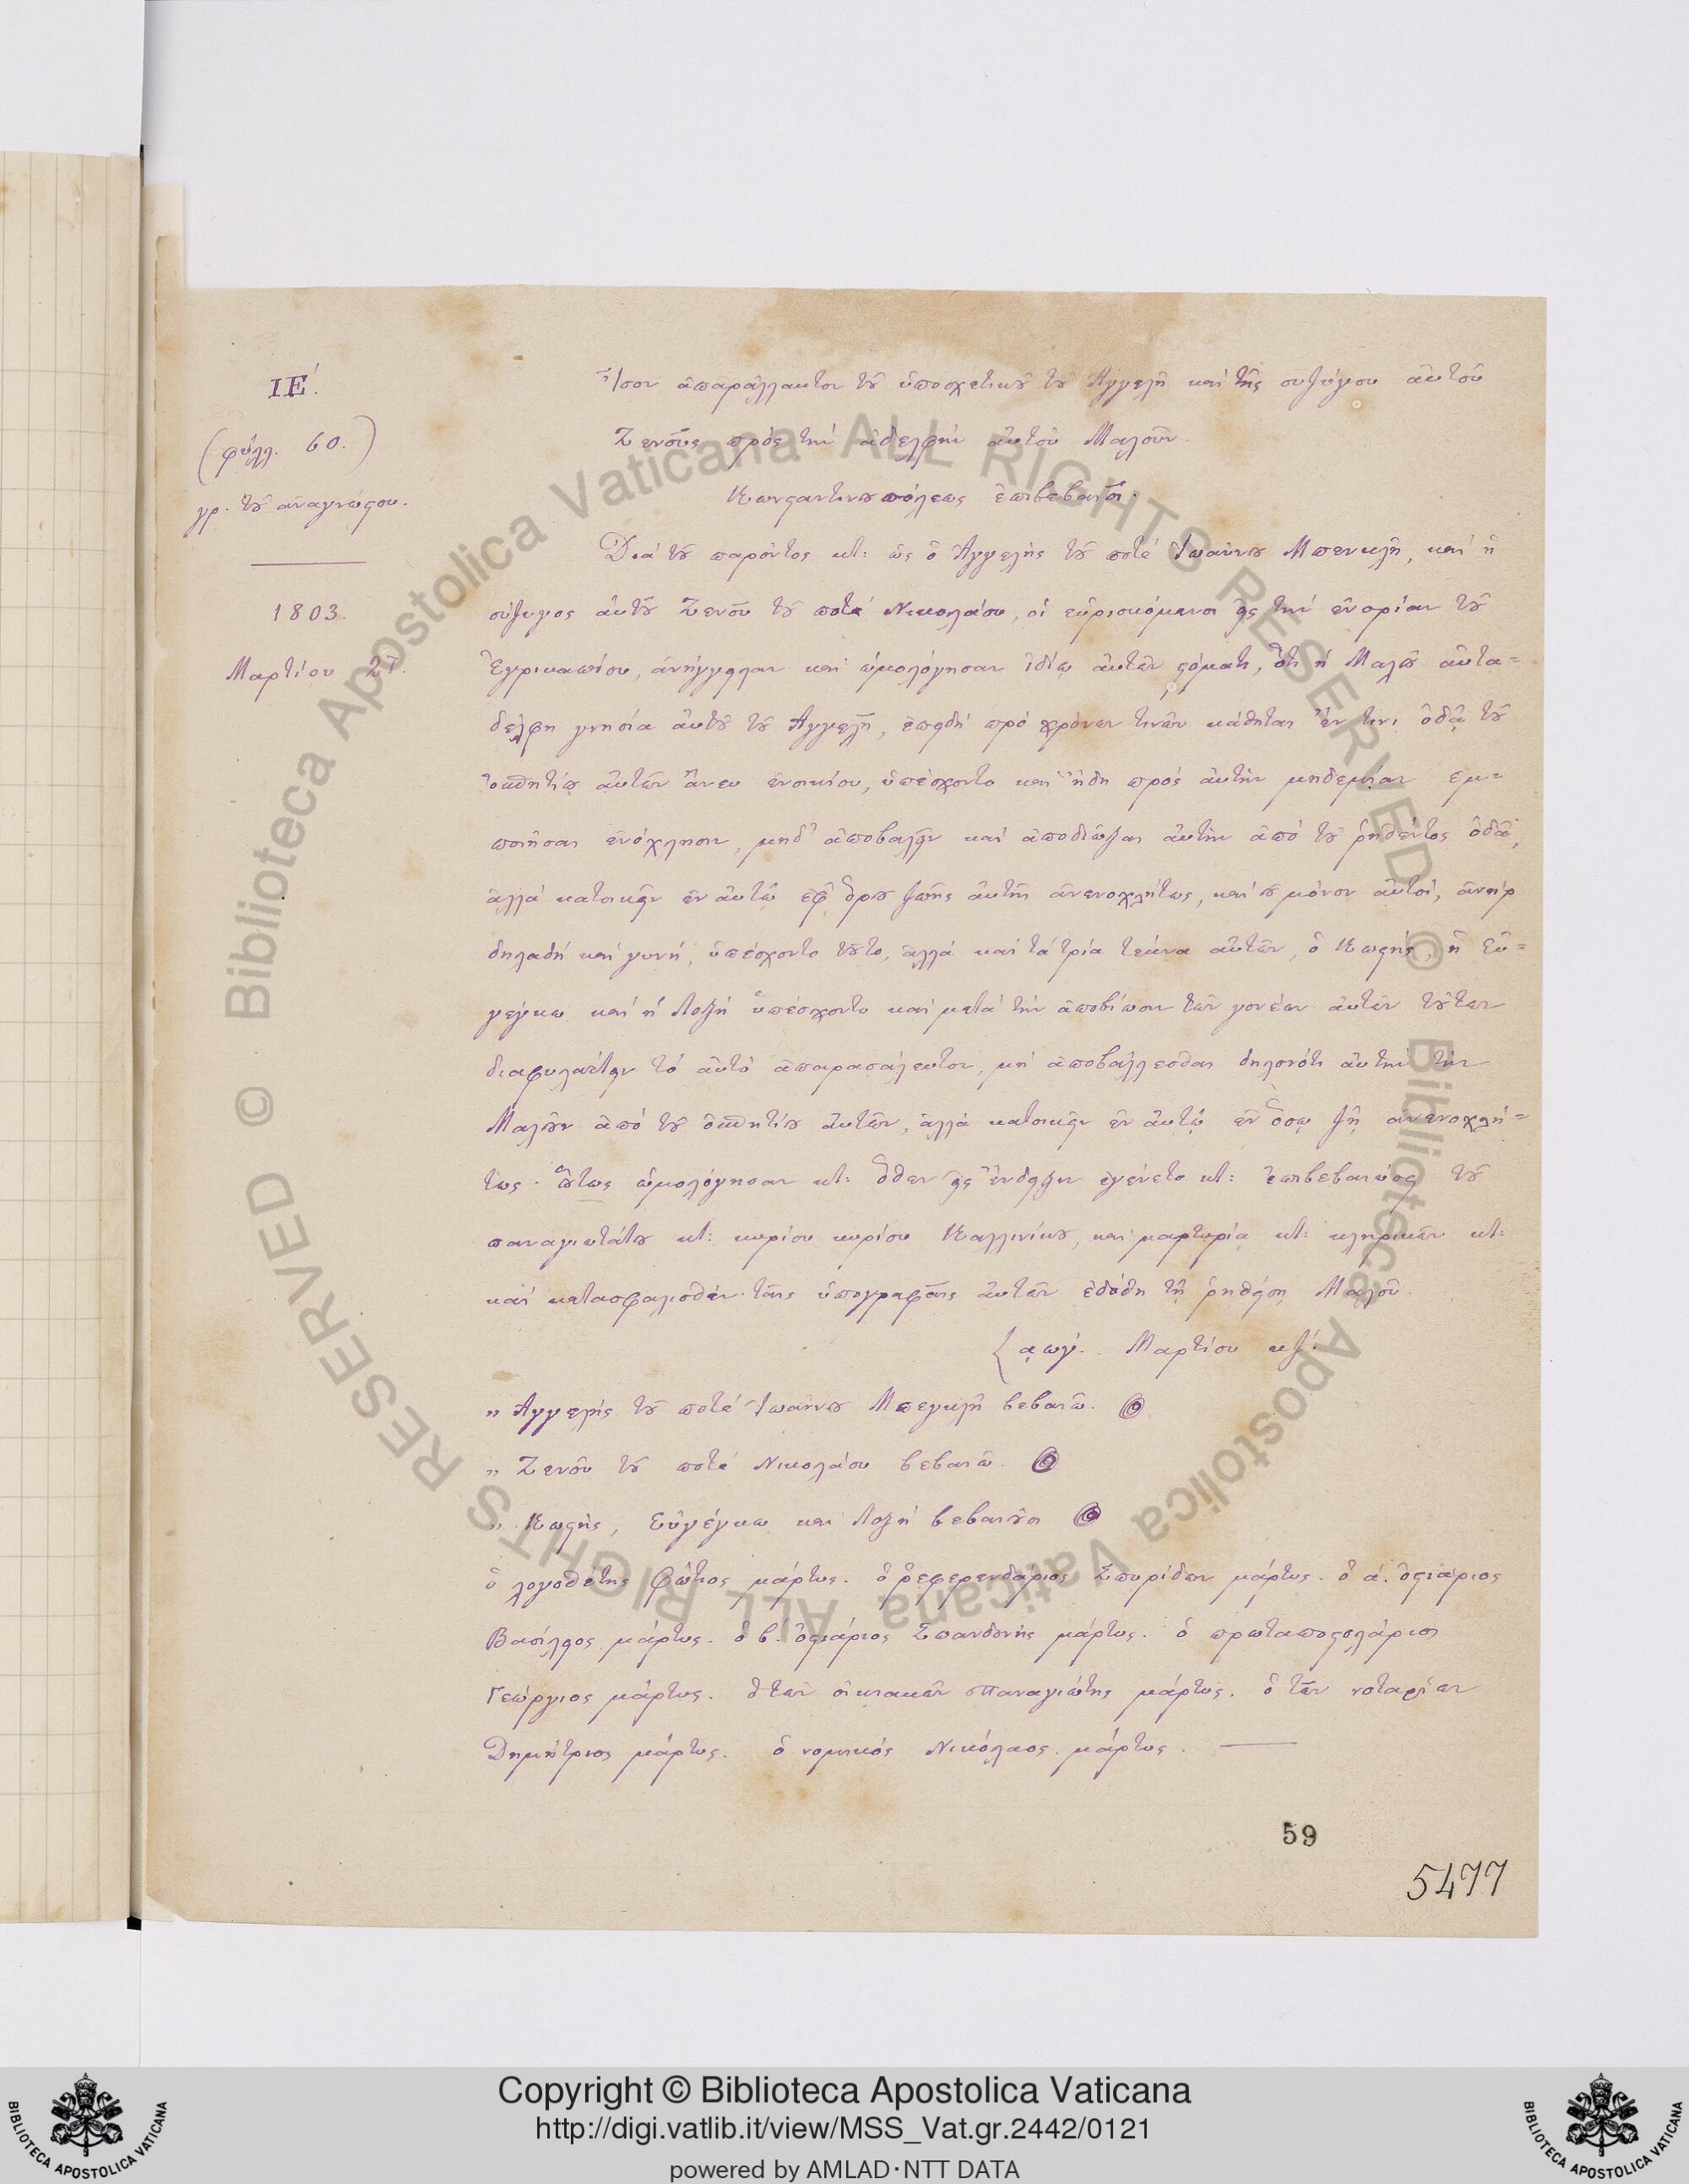 ΙΕ΄.
(φύλλ. 60.)
γρ. τοῦ ἀναγνώστου.
1803.
Μαρτίου 27.
Ἴσον ἀπαράλλακτον τοῦ ὑποσχετικοῦ τοῦ Ἀγγελῆ καὶ τῆς συζύγου αὐτοῦ
Ζενοῦς πρὸς τὴν ἀδελφὴν αὐτοῦ Μαλοῦν.
Κωνσταντινουπόλεως ἐπιβεβαιοῖ.
Διὰ τοῦ παρόντος κτ: ὡς ὁ Ἀγγελῆς τοῦ ποτὲ Ἰωάννου Μπενκλῆ, καὶ ἡ
σύζυγος αὐτοῦ Ζενοῦ τοῦ ποτὲ Νικολάου, οἱ εὑρισκόμενοι εἰς τὴν ἐνορίαν τοῦ
Ἐγρικαπίου, ἀνήγγειλαν καὶ ὡμολόγησαν ἰδίῳ αὐτῶν στόματι, ὅτι ἡ Μαλοῦ αὐτα=
δέλφη γνησία αὐτοῦ τοῦ Ἀγγελῆ, ἐπειδὴ πρὸ χρόνων τινῶν κάθηται ἔν τινι ὀδᾷ τοῦ
ὀσπητίου αὐτῶν ἄνευ ἐνοικίου, ὑπέσχοντο καὶ ἤδη πρὸς αὐτὴν μηδεμίαν ἐμ=
ποιῆσαι ἐνόχλησιν, μηδ' ἀποβαλεῖν καὶ ἀποδιῶξαι αὐτὴν ἀπὸ τοῦ ῥηθέντος ὀδᾶ,
ἀλλὰ κατοικεῖν ἐν αὐτῷ ἐφ' ὅρου ζωῆς αὐτῆς ἀνενοχλήτως, καὶ οὐ μόνον αὐτοὶ, ἀνὴρ
δηλαδὴ καὶ γυνὴ, ὑπέσχοντο τοῦτο, ἀλλὰ καὶ τὰ τρία τέκνα αὐτῶν, ὁ Κωστῆς, ἡ Εὐ=
γέγκω καὶ ἡ Λοξὴ ὑπέσχοντο καὶ μετὰ τὴν ἀποβίωσιν τῶν γονέων αὐτῶν τούτων
διαφυλάττειν τὸ αὐτὸ ἀπαρασάλευτον, μὴ ἀποβάλλεσθαι δηλονότι αὐτὴν τὴν
Μαλοῦν ἀπὸ τοῦ ὀσπητίου αὐτῶν, ἀλλὰ κατοικεῖν ἐν αὐτῷ ἐν ὅσῳ ζῇ ἀνενοχλή=
τως. Οὕτως ὡμολόγησαν κτ: ὅθεν εἰς ἔνδειξιν ἐγένετο κτ: ἐπιβεβαιώσει τοῦ
παναγιωτάτου κτ: κυρίου κυρίου Καλλινίκου, καὶ μαρτυρίᾳ κτ: κληρικῶν κτ:
καὶ κατασφαλισθὲν ταῖς ὑπογραφαῖς αὐτῶν ἐδόθη τῇ ῥηθείσῃ Μαλοῦ.
͵αωγ΄. Μαρτίου κζ΄.
" Ἀγγελῆς τοῦ ποτὲ Ἰωάννου Μπεγκλῆ βεβαιῶ.
" Ζενοῦ τοῦ ποτὲ Νικολάου βεβαιῶ.
" Κωστῆς, Εὐγέγκω καὶ Λοξὴ βεβαιοῦσι
ὁ λογοθέτης Φώτιος μάρτυς. ὁ ῥεφερενδάριος Σπυρίδων μάρτυς. ὁ α΄. ὀστιάριος
Βασίλειος μάρτυς. ὁ β΄. ὀστιάριος Σπανδωνῆς μάρτυς. ὁ πρωταποστολάριος
Γεώργιος μάρτυς. ὁ τῶν οἰκιακῶν Παναγιώτης μάρτυς. ὁ τῶν νοταρίων
Δημήτριος μάρτυς. ὁ νομικὸς Νικόλαος μάρτυς.
59
5477
© Biblioteca Apostolica Vaticana ALL RIGHTS RESERVED © Biblioteca Apostolica Vaticana ALL RIGHTS RESERVED
BIBLIOTECA APOSTOLICA VATICANA
Copyright © Biblioteca Apostolica Vaticana
http://digi.vatlib.it/view/MSS_Vat.gr.2442/0121
powered by AMLAD·NTT DATA
BIBLIOTECA APOSTOLICA VATICANA